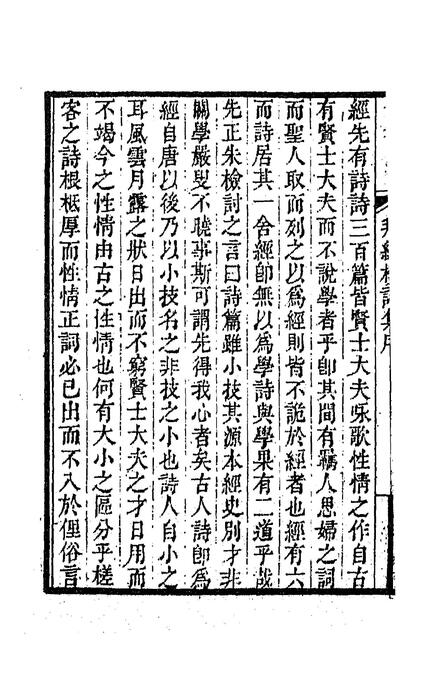 經先有詩詩三百篇皆賢士大夫咏歌性情之作自古
有賢士大夫而不說學者乎卽其間有羈人思婦之詞
而聖人取而列之以爲經則皆不詭於經者也經有六
而詩居其一舍經卽無以爲學詩與學果有二道乎哉
先正朱檢討之言曰詩篇雖小技其源本經史別才非
關學嚴叟不曉事斯可謂先得我心者矣古人詩卽爲
經自唐以後乃以小技名之非技之小也詩人自小之
耳風雲月露之狀日出而不窮賢士大夫之才日用而
不竭今之性情由古之性情也何有大小之區分乎槎
客之詩根柢厚而性情正詞必己出而不入於俚俗言